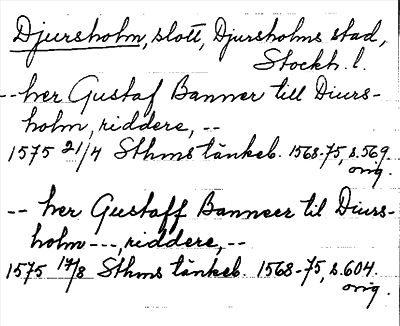 Djursholm, slott, Djursholms stad,
Stockh. l.
-- her Gustaf Banner till Diurs-
holm, riddere, --
1575 21/4 Sthms tänkeb. 1568-75, s.569.
orig.
-- her Gustaff Banneer til Diurs-
holm ---, riddere, --
1575 17/8 Sthms tänkeb. 1568-75, s.604.
orig.